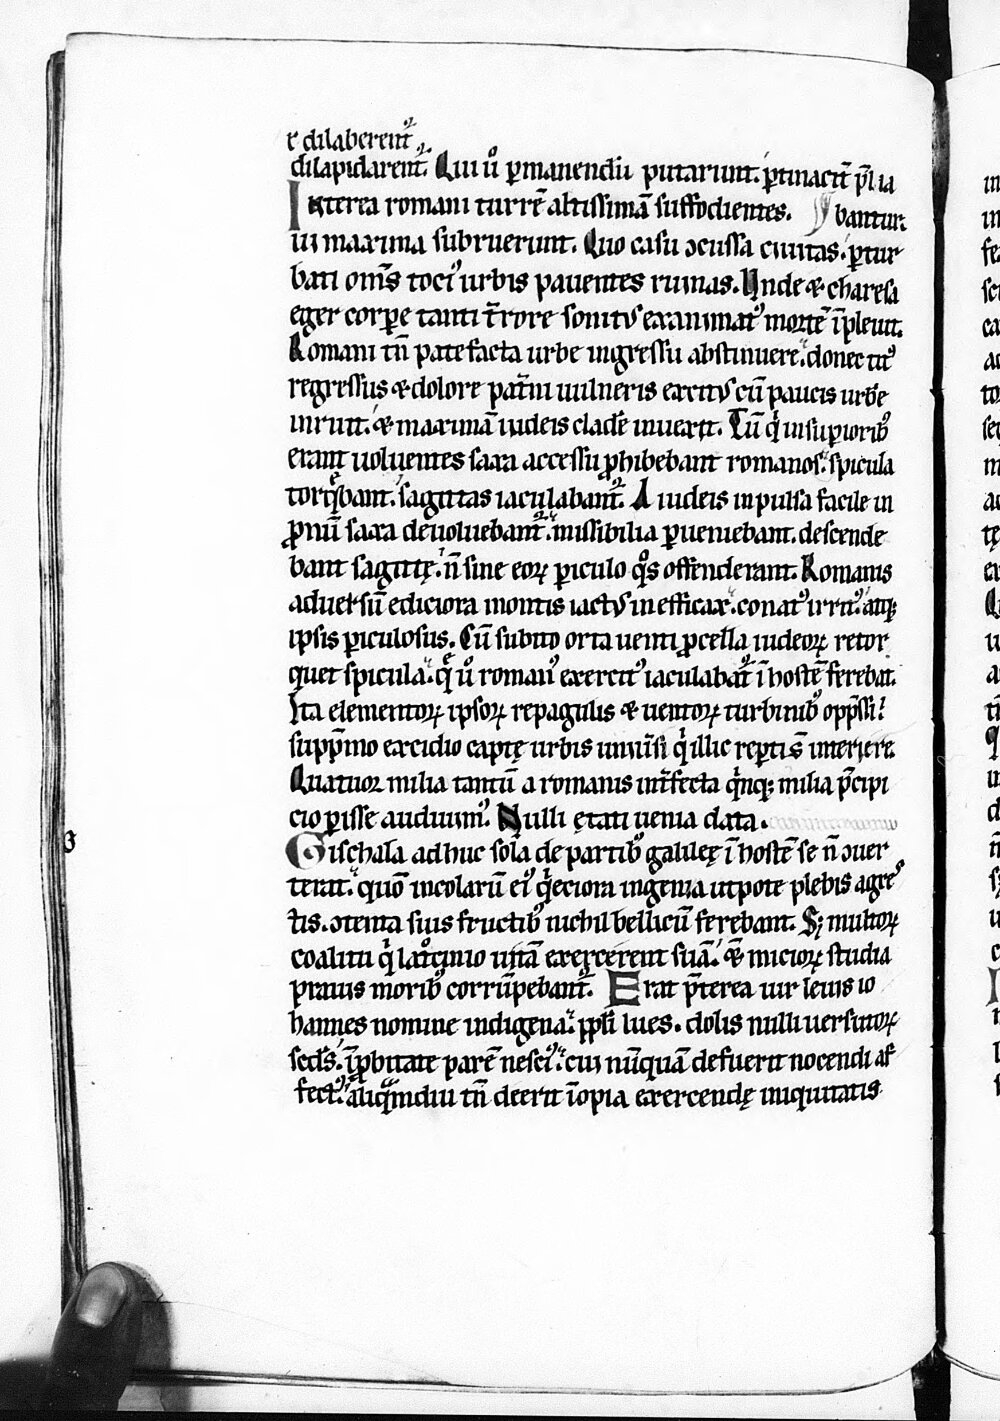 r dilaberent᷑
dilapidarent᷑. Qui ů ꝑmanendū putarunt. ꝑtinacit̄ p̄lia
bantur.
Interea romani turrē altissimā suffodientes.
ui maxima subruerunt. Quo casu ɔcussa ciuitas. ꝑtur
bati om̄s tociꝰ urbis pauentes ruinas. Unde & charesa
eger corꝑe tanti t̄rore sonitꝰ exanimatꝰ mortē īpleuit.
Romani tn̄ patefacta urbe ingressu abstinuere. donec titꝰ
regressus & dolore pat̄ni uulneris excitꝰ cū paucis urbē
inruit. & maximā iudeis cladē inuexit. Tū qͥ in supioribꝰ
erant uoluentes saxa accessu ꝓhibebant romanos. spicula
torqͣbant. sagittas iaculabant᷑. A iudeis inpulsa facile in
ꝓnū saxa deuoluebant᷑. missibilia ꝑueniebant. descende
bant sagittę. n̄ sine eoꝝ ꝑiculo qͦs offenderant. Romanis
aduersū ediciora montis iactꝰ inefficax. conatꝰ irritꝰ. atqꝫ
ipsis ꝑiculosus. Cū subito orta uenti ꝓcella iudeoꝝ retor
quet spicula. qͤ ů romanꝰ exercitꝰ iaculabat᷑ ī hostē ferebat.
Ita elementoꝝ ipsoꝝ repagulis & uentoꝝ turbinibꝰ opp̄ssi.
supp̄mo excidio captę urbis uniūsi qͥ illic reꝑti s̄ interiere.
Quatuor milia tantū a romanis int̄fecta qͥnqꝫ milia p̄cipi
cio ꝑisse audiuimꝰ. Nulli ętati uenia data.
Gischala adhuc sola de partibꝰ galileę ī hostē se n̄ ɔuer
terat. quō incolarū eiꝰ qͥeciora ingenia utpote plebis agre
tis. ɔtenta suis fructibꝰ nichil bellicū ferebant. Sꝫ multoꝝ
coaliti qͥ lat͡ocinio uitā exercerent suā. & micioꝝ studia
prauis moribꝰ corrūpebant᷑. Erat p̄terea uir leuis io
hannes nomine indigena. ppl̄i lues. dolis nulli uersutioꝝ
scd̄s. īꝓbitate parē nesciꝰ. cui nūquā defuerit nocendi af
fectꝰ. aliqͣndiu tn̄ deerit īopia exercendę iniquitatis